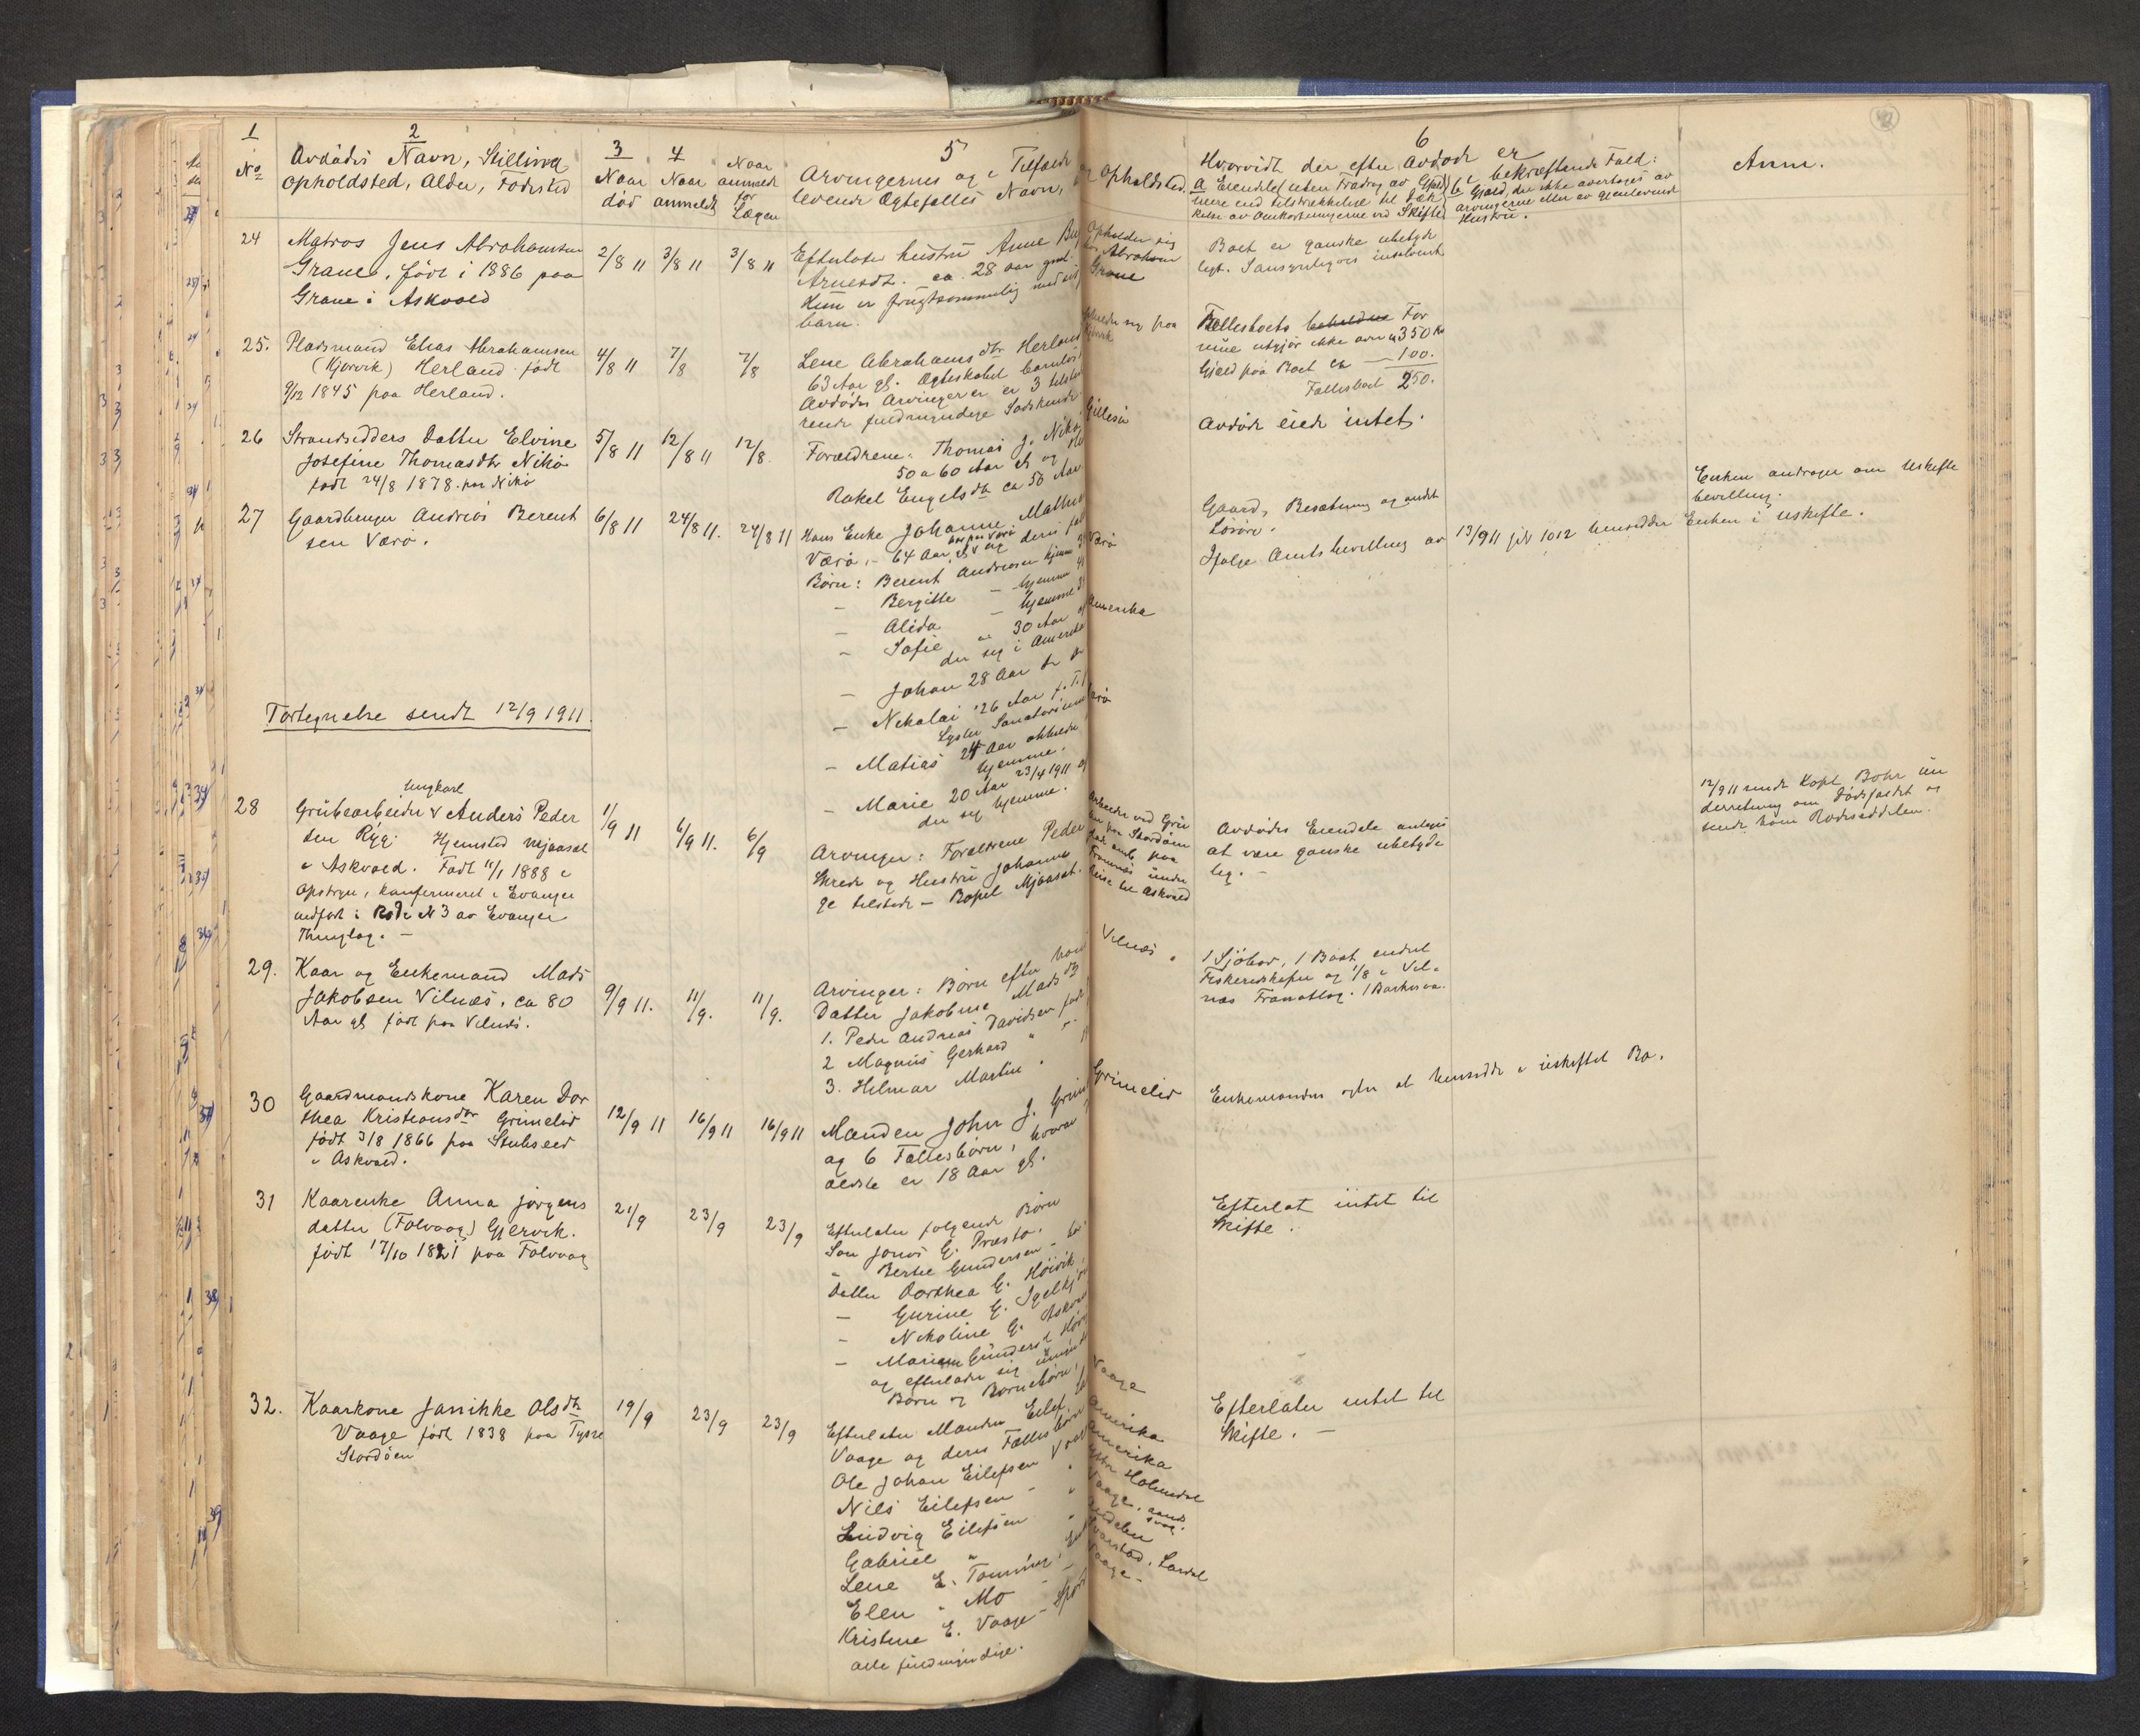 1
No
2
Avdødes Navn, Stilling
Opholdsted, Alder, Fødested
3
Naar
død
4
Naar
anmeldt
Naar
anmeldt
for
Lægen
5
Arvingernes og i Tilfælde
levende Ægtefælles Navn,
Opholdsted.
6
Hvorvidt der efter Avdøde er
a Eiendele uten Fradrag av Gjæld
mere end tilstrækkelige til Dæk
kelse av Omkostningerne ved Skifte
i bekræftende Fald:
b Gjæld, der ikke overtages av
arvingerne eller av gjenlevende
Hustru.
Anm.
24
Matros Jens Abrahamsen
Grane, født i 1886 paa
Grane i Askvold
2/8 11
3/8 11
3/8 11
Efterlater hustru Anne
Arnesdt. ca. 28 aar gml.
Hun er frugtsommelig med
barn.
Opholder sig
hos Abraham
Grane
Boet er ganske ubetyde
ligt. Sansynligvis insolvent
25.
Pladsmand Elias Abrahamsen
(Kjørvik) Herland født
9/12 1845 paa Herland.
4/8 11
7/8
7/8
Lene Abrahamsdtr Herland
63 Aar gl. Ægteskabet barnløst
Avdødes Arvinger er 3
fuldmyndige Sødskende
paa
Fællesboets beholdne For
mue utgjør ikke over 350 Kr
Gjæld paa Boet ca — 100.
Fællesboet 250.
26
Strandsidders Datter Elvine
Josefine Thomasdtr Nikø
født 24/8 1878. paa Nikø
5/8 11
12/8 11
12/8.
Forældrene: Thomas J. Nikø
50 a 60 Aar gl og
Rakel Engelsdtr ca 50 Aar
Avdøde eiede intet.
27
Gaardbruger Andreas Berent
sen Værø.
6/8 11
24/8 11.
24/8 11
Hans Enke Johanne
Værø, - 64 Aar gl og deres
Børn: Berent Andreasen hjemme
— Bergitte — hjemme
— Alida — hjemme
— Sofie " 30 Aar
der sig i Amerika
— Johan 28 Aar
— Nikolai 26 Aar
Lyster Sanatorium
— Matias 24 Aar
hjemme.
— Marie 20 Aar 23/4 1911
der sig hjemme.
Værø
Amerika
Gaard, Besætning og andet
Løsøre.
Ifølge Amtsbevilling av 13/9 11 jnl 1012 hensidder Enken i uskifte.
Enken andrager om Uskifte
bevilling.
Fortegnelse sendt 12/9 1911.
28
Ungkarl
Grubearbeider v Anders Peder
sen Rýg. Hjemsted Mjaaset
i Askvold. Født 11/1 1888 i
Opstryn, konfirmeret i Evanger
indført i Rode N 3 av Evanger
Thinglag. —
1/9 11
6/9 11.
6/9
Arvinger: Forældrene Peder
Skrede og Hustru Johanne
ge tilstede — Bopæl Mjaaset.
Arbeidet ved Gru
ben paa Stordøen
paa
Framnæs under
Reise til Askvold
Avdødes Eiendele antages
at være ganske ubetyde
lig. —
12/9 11 sendt Kapt. Bøhr un
derretning om Dødsfaldet og
sendt ham Rodeseddelen.
29.
Kaar og Enkemand Mads
Jakobsen Vilnæs. ca 80
Aar gl født paa Vilnæs.
9/9 11.
11/9.
11/9.
Arvinger: Børn efter
Datter Jakobine Madsdtr
1. Peder Andreas Davidsen
2 Magnus Gerhard "
3. Helmar Martin "
Vilnæs
1 Sjøbod, 1 Baat, endel
Fiskeredskaper og 1/8 i Vil-
næs
30
Gaardmandskone Karen Dor
thea Kristiansdtr Grimelid
født 3/8 1866 paa Stubseid
i Askvold.
12/9 11
16/9 11
16/9 11
Manden John J.
og 6 Fællesbørn, hvorav
ældste er 18 Aar gl.
Grimelid
Enkemanden agter at hensidde i uskiftet Bo.
31
Kaarenke Anna Jørgens
datter (Folvaag) Gjervik.
født 17/10 1821 paa Folvaag
21/9
23/9
23/9
Efterlater følgende Børn
Søn Jonas G. Præstø.
" Bertel Gundersen
Datter Dorthea G. Høivik
— Gurine G.
— Nikoline G.
— Gunders
og efterlader sig
Børn og Børnebørn
Efterlat intet til
Skifte.
32.
Kaarkone Jannikke Olsdtr
Vaage født 1838 paa Tysse
Stordøen
19/9
23/9
23/9
Efterlater Manden Eilef
Vaage og deres Fællesbørn
Ole Johan Eilefsen
Nils Eilefsen
Ludvig Eilefsen
Gabriel "
Lene E.
Elen " Mo
Kristine E. Vaage
alle fuldmyndige.
Vaage
Amerika
Amerika
Holmedal
Vaage
Vaage
Efterlater intet til
Skifte. —